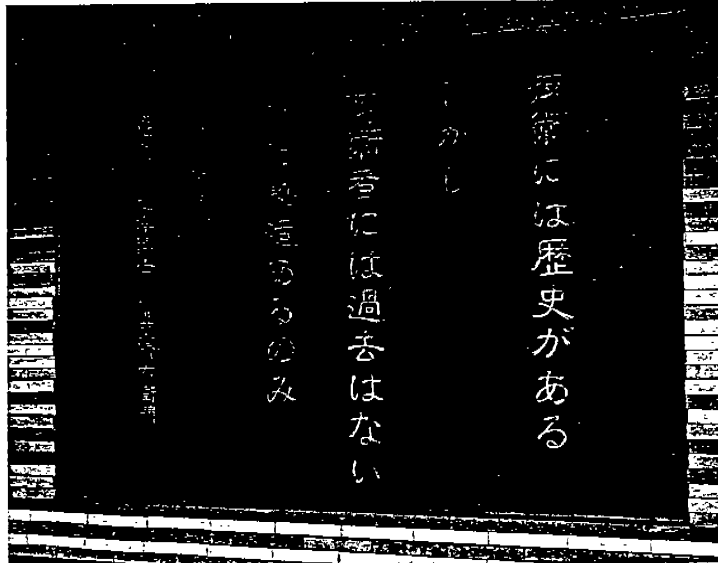 技術には歴史がある
しかし
技術者には過去はない
ただ創造あるのみ